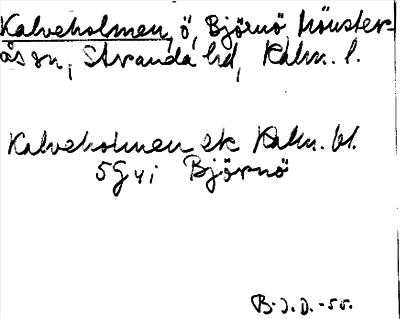 Kalveholmen, ö, Björnö Mönster-
ås sn, Stranda hd, Kalm. l.
Kalveholmen ek Kalm. bl.
5G4i Björnö
B-J.D.-55.